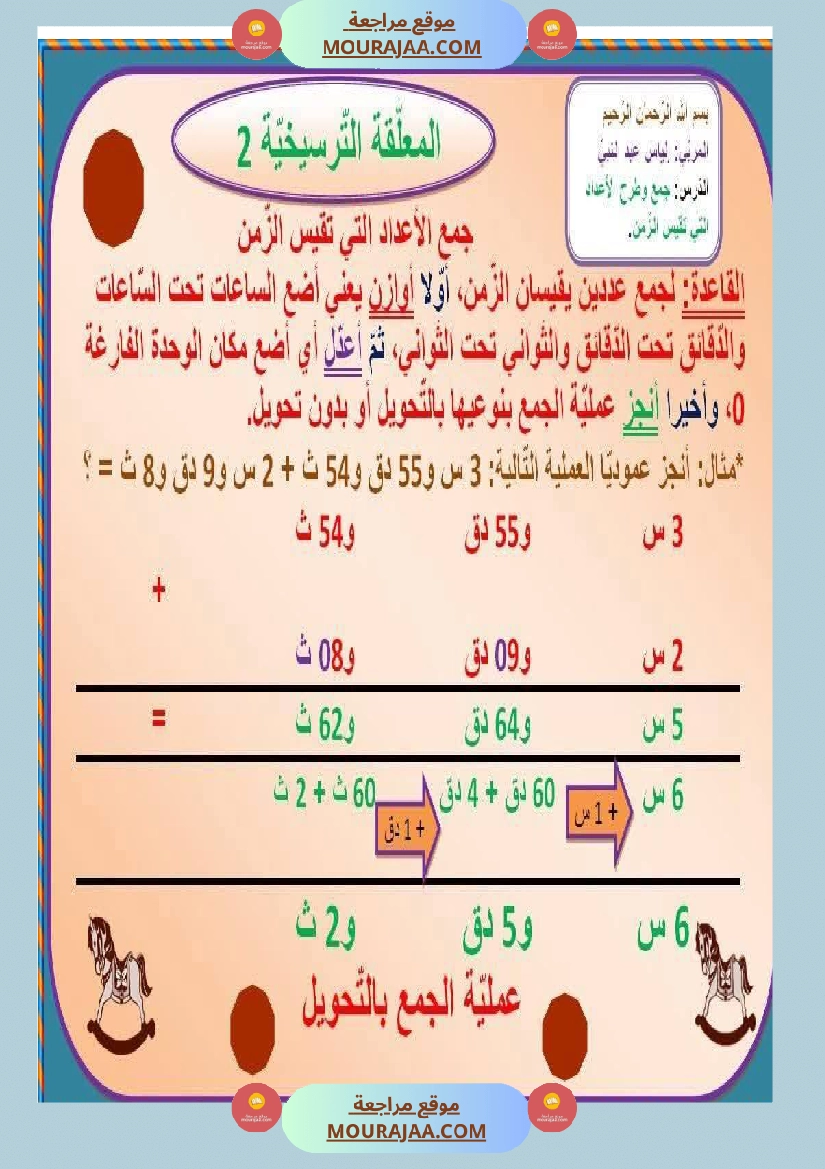 موقع مراجعة
MOURAJAA.COM
بسم الله الرّحمان الرّحيم
المربّي: لياس عبد النبيّ
الدّرس: جمع وطرح الأعداد
التي تقيس الزّمن.
المعلّقة التّرسيخيّة 2
جمع الأعداد التي تقيس الزّمن
القاعدة: لجمع عددين يقيسان الزّمن، أوّلا أوازن يعني أضع الساعات تحت السّاعات
والدّقائق تحت الدّقائق والثّواني تحت الثّواني، ثمّ أعدّل أي أضع مكان الوحدة الفارغة
0، وأخيرا أنجز عمليّة الجمع بنوعيها بالتّحويل أو بدون تحويل.
*مثال: أنجز عموديّا العملية التّالية: 3 س و55 دق و54 ث + 2 س و9 دق و8 ث = ؟
3 س و55 دق و54 ث
+
2 س و09 دق و08 ث
5 س و64 دق و62 ث =
6 س + 1 س 60 دق + 4 دق + 1 دق 60 ث + 2 ث
6 س و5 دق و2 ث
عمليّة الجمع بالتّحويل
موقع مراجعة
MOURAJAA.COM